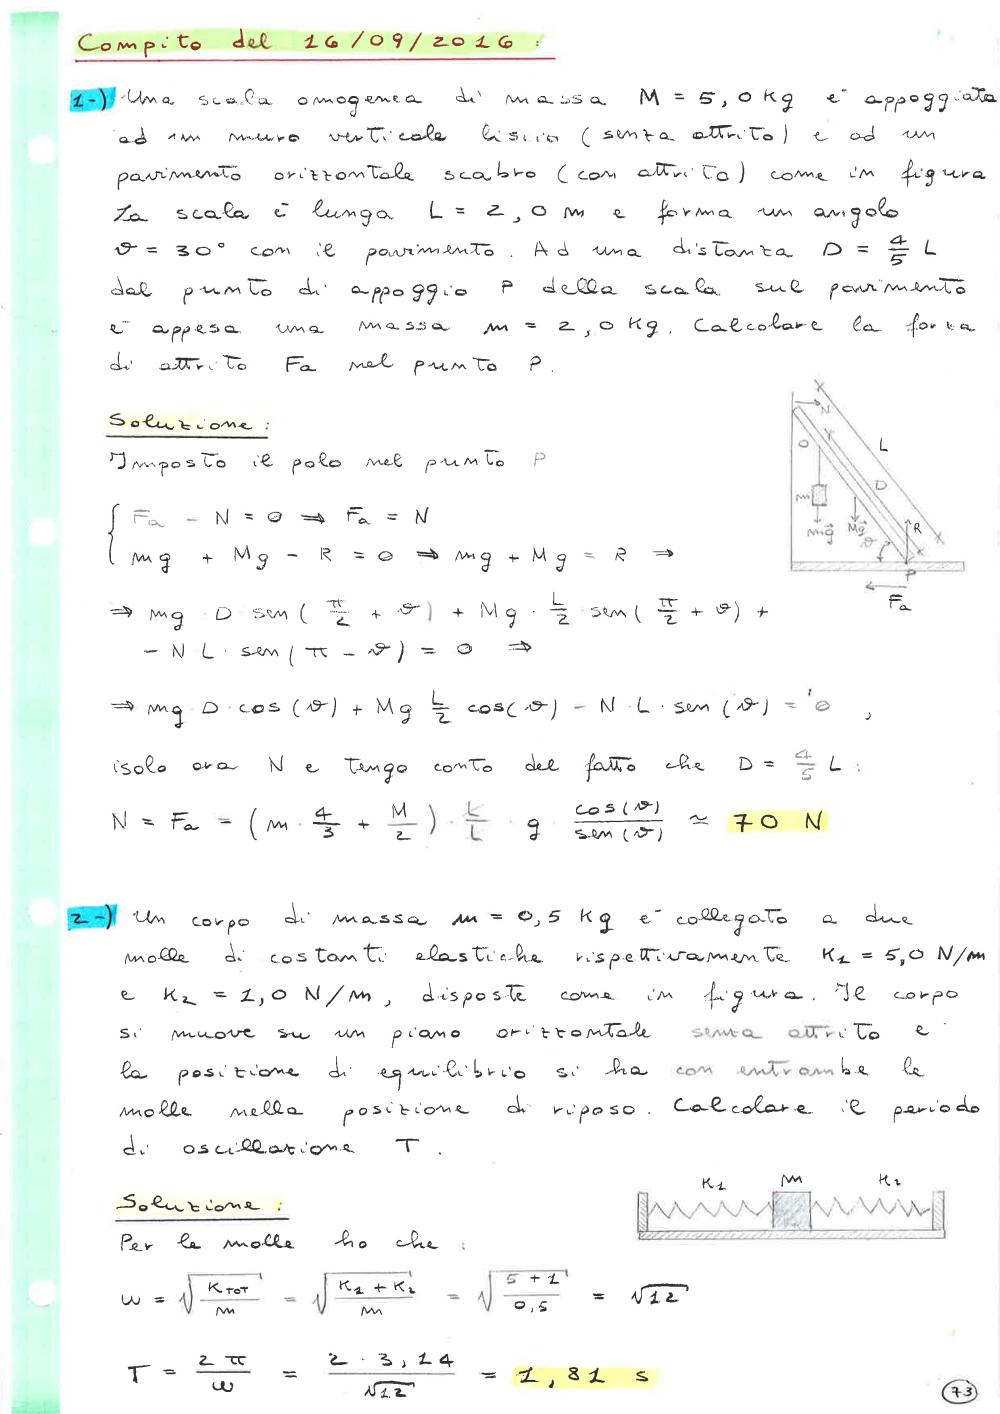 Compito del 16/09/2016:
1-) Una scala omogenea di massa M = 5,0 Kg è appoggiata
ad un muro verticale liscio (senza attrito) e ad un
pavimento orizzontale scabro (con attrito) come in figura
La scala è lunga L = 2,0 m e forma un angolo
ϑ = 30° con il pavimento. Ad una distanza D = 4/5 L
dal punto di appoggio P della scala sul pavimento
è appesa una massa m = 2,0 Kg. Calcolare la forza
di attrito Fa nel punto P.
Soluzione:
Imposto il polo nel punto P
{ Fa - N = 0 ⇒ Fa = N
mg + Mg - R = 0 ⇒ mg + Mg = R ⇒
⇒ mg · D sen(π/2 + ϑ) + Mg · L/2 sen(π/2 + ϑ) +
- N L · sen(π - ϑ) = 0 ⇒
⇒ mg · D · cos(ϑ) + Mg L/2 cos(ϑ) - N · L · sen(ϑ) = 0 ,
isolo ora N e tengo conto del fatto che D = 4/5 L:
N = Fa = (m · 4/3 + M/2) · L/L · g cos(ϑ)/sen(ϑ) ≃ 70 N
N
L
O
D
m
mg
Mg
ϑ
R
P
Fa
2-) Un corpo di massa m = 0,5 Kg è collegato a due
molle di costanti elastiche rispettivamente K1 = 5,0 N/m
e K2 = 1,0 N/m, disposte come in figura. Il corpo
si muove su un piano orizzontale senza attrito e
la posizione di equilibrio si ha con entrambe le
molle nella posizione di riposo. Calcolare il periodo
di oscillazione T.
K1 m K2
Soluzione:
Per le molle ho che:
ω = √(KTOT/m) = √((K1 + K2)/m) = √((5 + 1)/0,5) = √12
T = 2π/ω = 2 · 3,14/√12 = 1,81 s
73